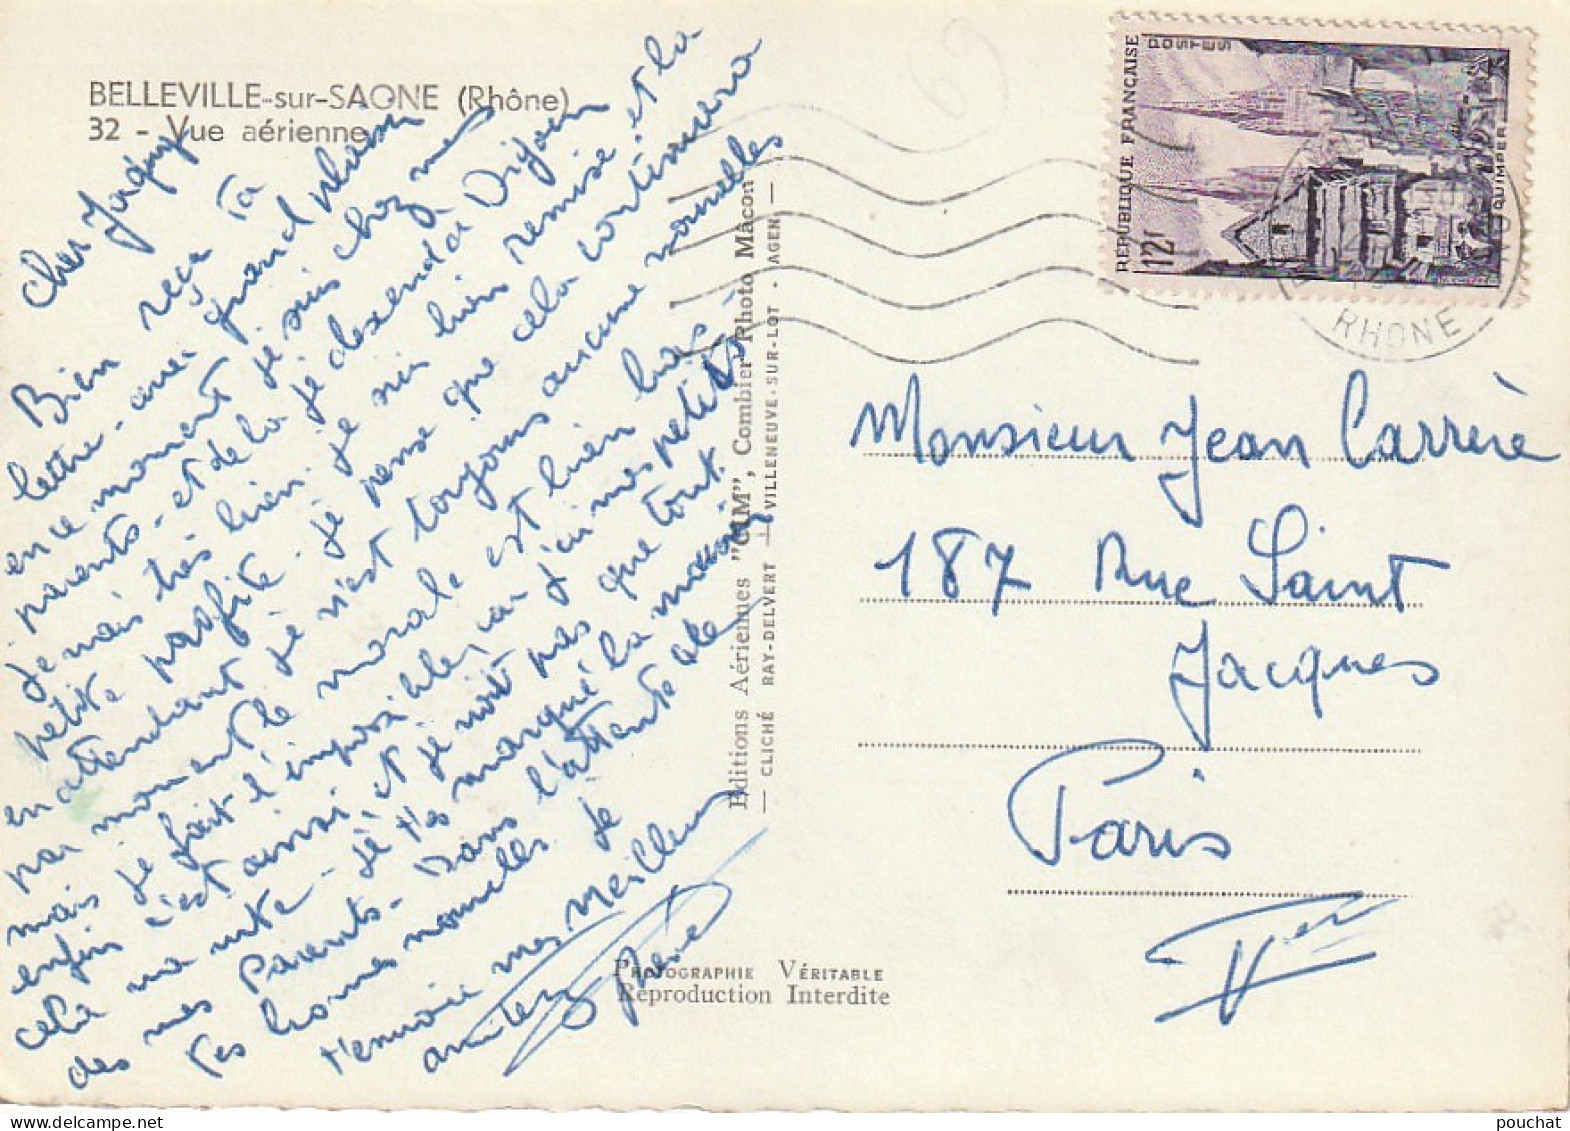 BELLEVILLE-sur-SAONE (Rhône)
32 - Vue aérienne
Cher Jacques
Bien reçu ta
lettre - avec quand
en ce moment je suis chez mes
parents - et de là je descends à Dijon
je vais très bien. je suis bien remise. et la
petite profite. je pense que cela continuera
en attendant je n'est toujours aucune nouvelles
par moment le morale est bien bas -
mais je fait l'impossible, car j'ai mes petites
enfin c'est ainsi, et je voit pas que tout
cela va vite - je t'es marqué la maison
des mes Parents - Dans l'attente de
tes bonnes nouvelles je
t'envoie mes meilleurs
amitiés
Editions Aériennes "CIM", Combier Photo Mâcon
— CLICHÉ RAY-DELVERT — VILLENEUVE-SUR-LOT - AGEN —
PHOTOGRAPHIE VÉRITABLE
Reproduction Interdite
RÉPUBLIQUE FRANÇAISE
POSTES
12f
QUIMPER
RHONE
Monsieur Jean Carrère
187 Rue Saint
Jacques
Paris
Ver
pouchat